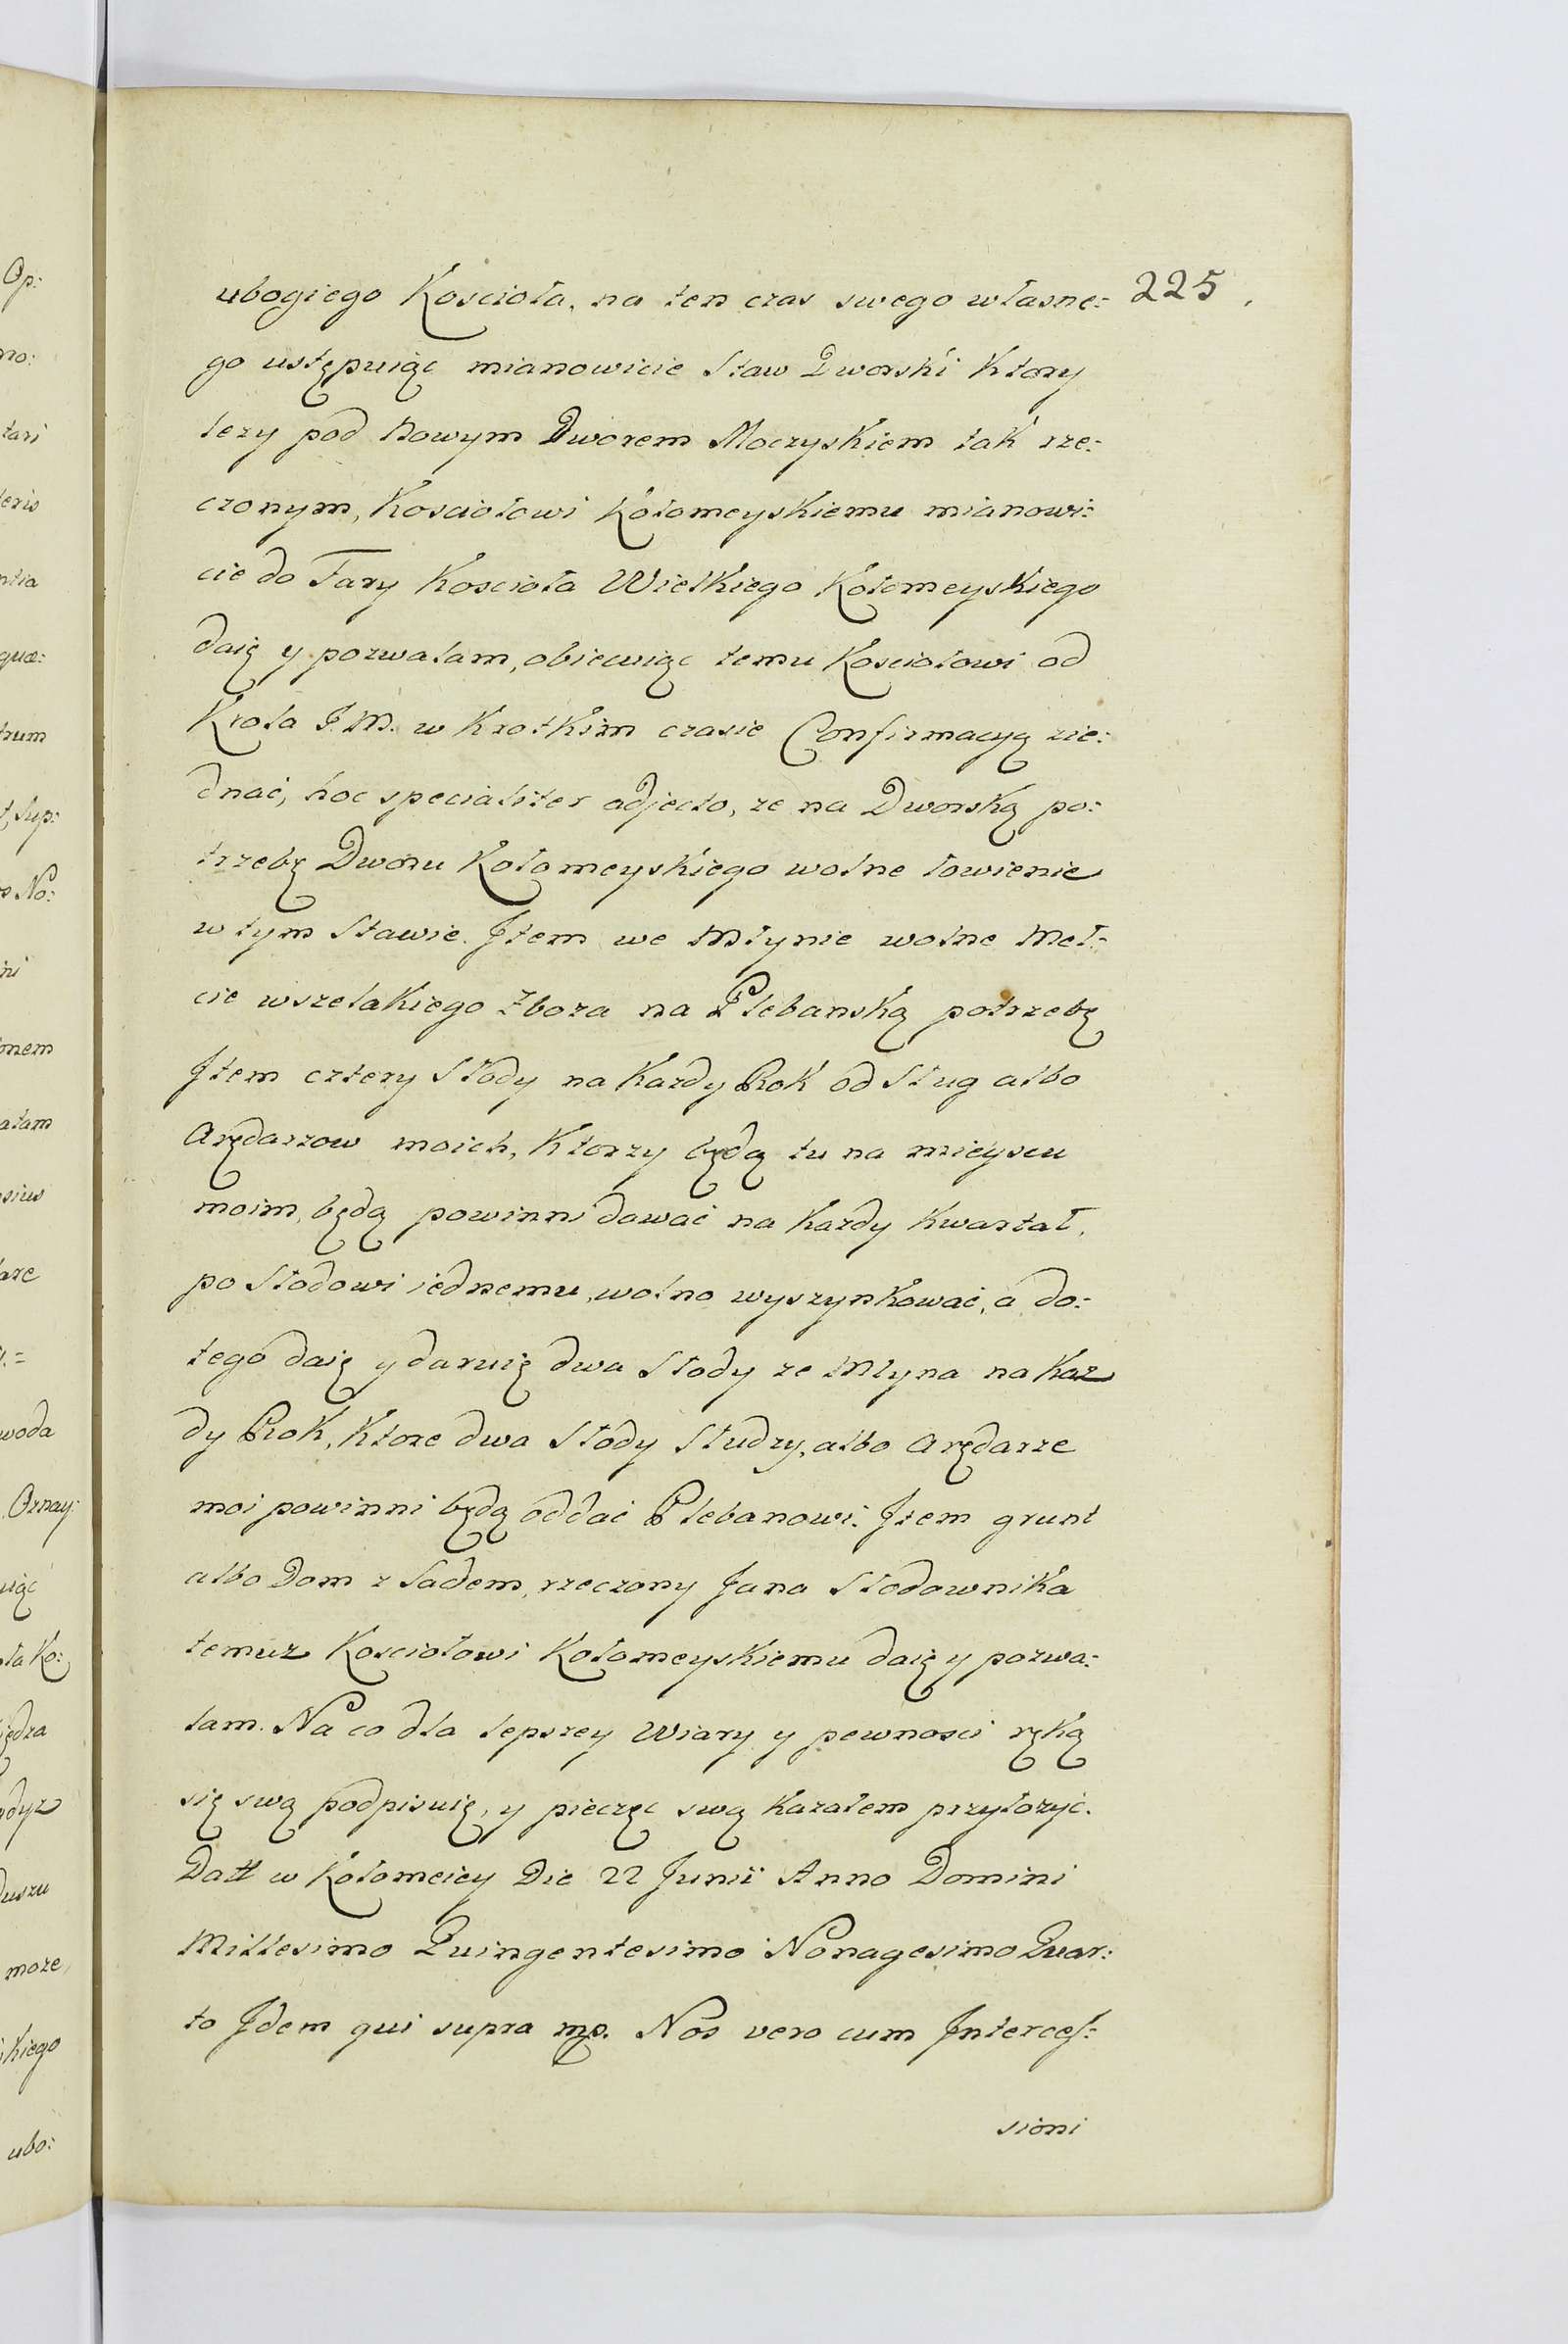 225.
ubogiego Koscioła, na ten czas swego własne:
go ustępuiąc mianowicie Staw Dworski Ktory
lezy pod Nowym Dworem Moczyskiem tak rze:
czonym, Kosciołowi Kołomeyskiemu mianowi:
cie do Fary Koscioła Wielkiego Kołomeyskiego
daię y pozwalam, obiecuiąc temu Kosciołowi od
Krola J. M. w Krotkim czasie Confirmacyą zie:
dnać, hoc specialiter adjecto, ze na Dworską po:
trzebę Dworu Kołomeyskiego wolne łowienie
w tym Stawie. Jtem we Młynie wolne Mel:
cie wszelakiego Zboza na Plebanską potrzebę
Jtem cztery Słody na Kazdy Rok od Sług albo
Arędarzow moich, Ktorzy będą tu na mieyscu
moim, będą powinni dawać na Kazdy Kwartał,
po Słodowi iednemu, wolno wyszynkować, a do:
tego daię y daruię dwa Słody ze Młyna na Kaz
dy Rok, Ktore dwa Słody Słudzy, albo Arędarze
moi powinni będą oddać Plebanowi. Jtem grunt
albo Dom z Sadem, rzeczony Jana Słodownika
temuz Kosciołowi Kołomeyskiemu daię y pozwa:
lam. Na co dla lepszey Wiary y pewnosci ręką
się swą podpisuię, y pieczęc swą Kazałem przyłozyć.
Datt w Kołomeiey Die 22 Junii Anno Domini
Millesimo Quingentesimo Nonagesimo Quar:
to Jdem qui supra mp. Nos vero cum Intercess:
sioni
Op:
mo:
tari
teris
ntia
quæ:
trum
t, Sup:
No:
ni
onem
atam
sius
woda
Oznay:
uiąc
ła Ko:
iędza
edyz
Duszu
moze,
ikiego
ubo: